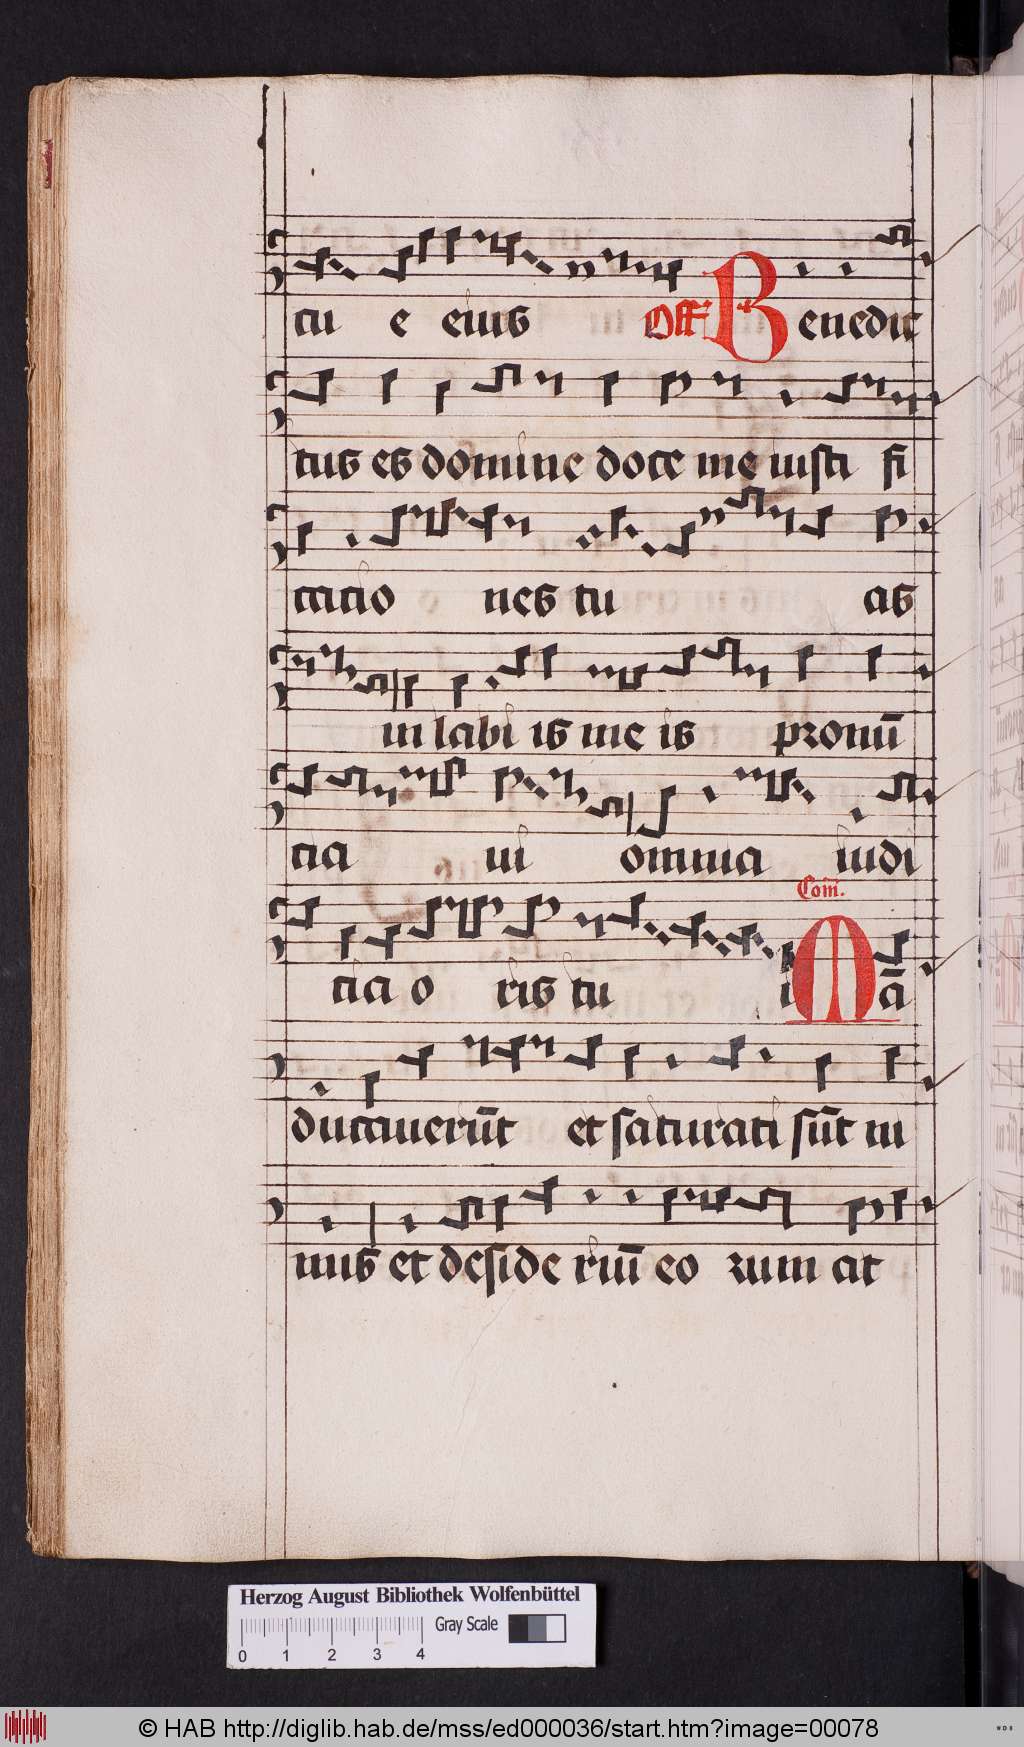 tu e eius Off Benedic
tus es domine doce me iusti fi
catio nes tu as
in labi is me is pronū
cia ui omnia iudi
Com̄.
cia o ris tu i Mā
ducauerūt et saturati sūt ni
mis et deside riū eo rum at
Herzog August Bibliothek Wolfenbüttel
Gray Scale
0 1 2 3 4
© HAB http://diglib.hab.de/mss/ed000036/start.htm?image=00078